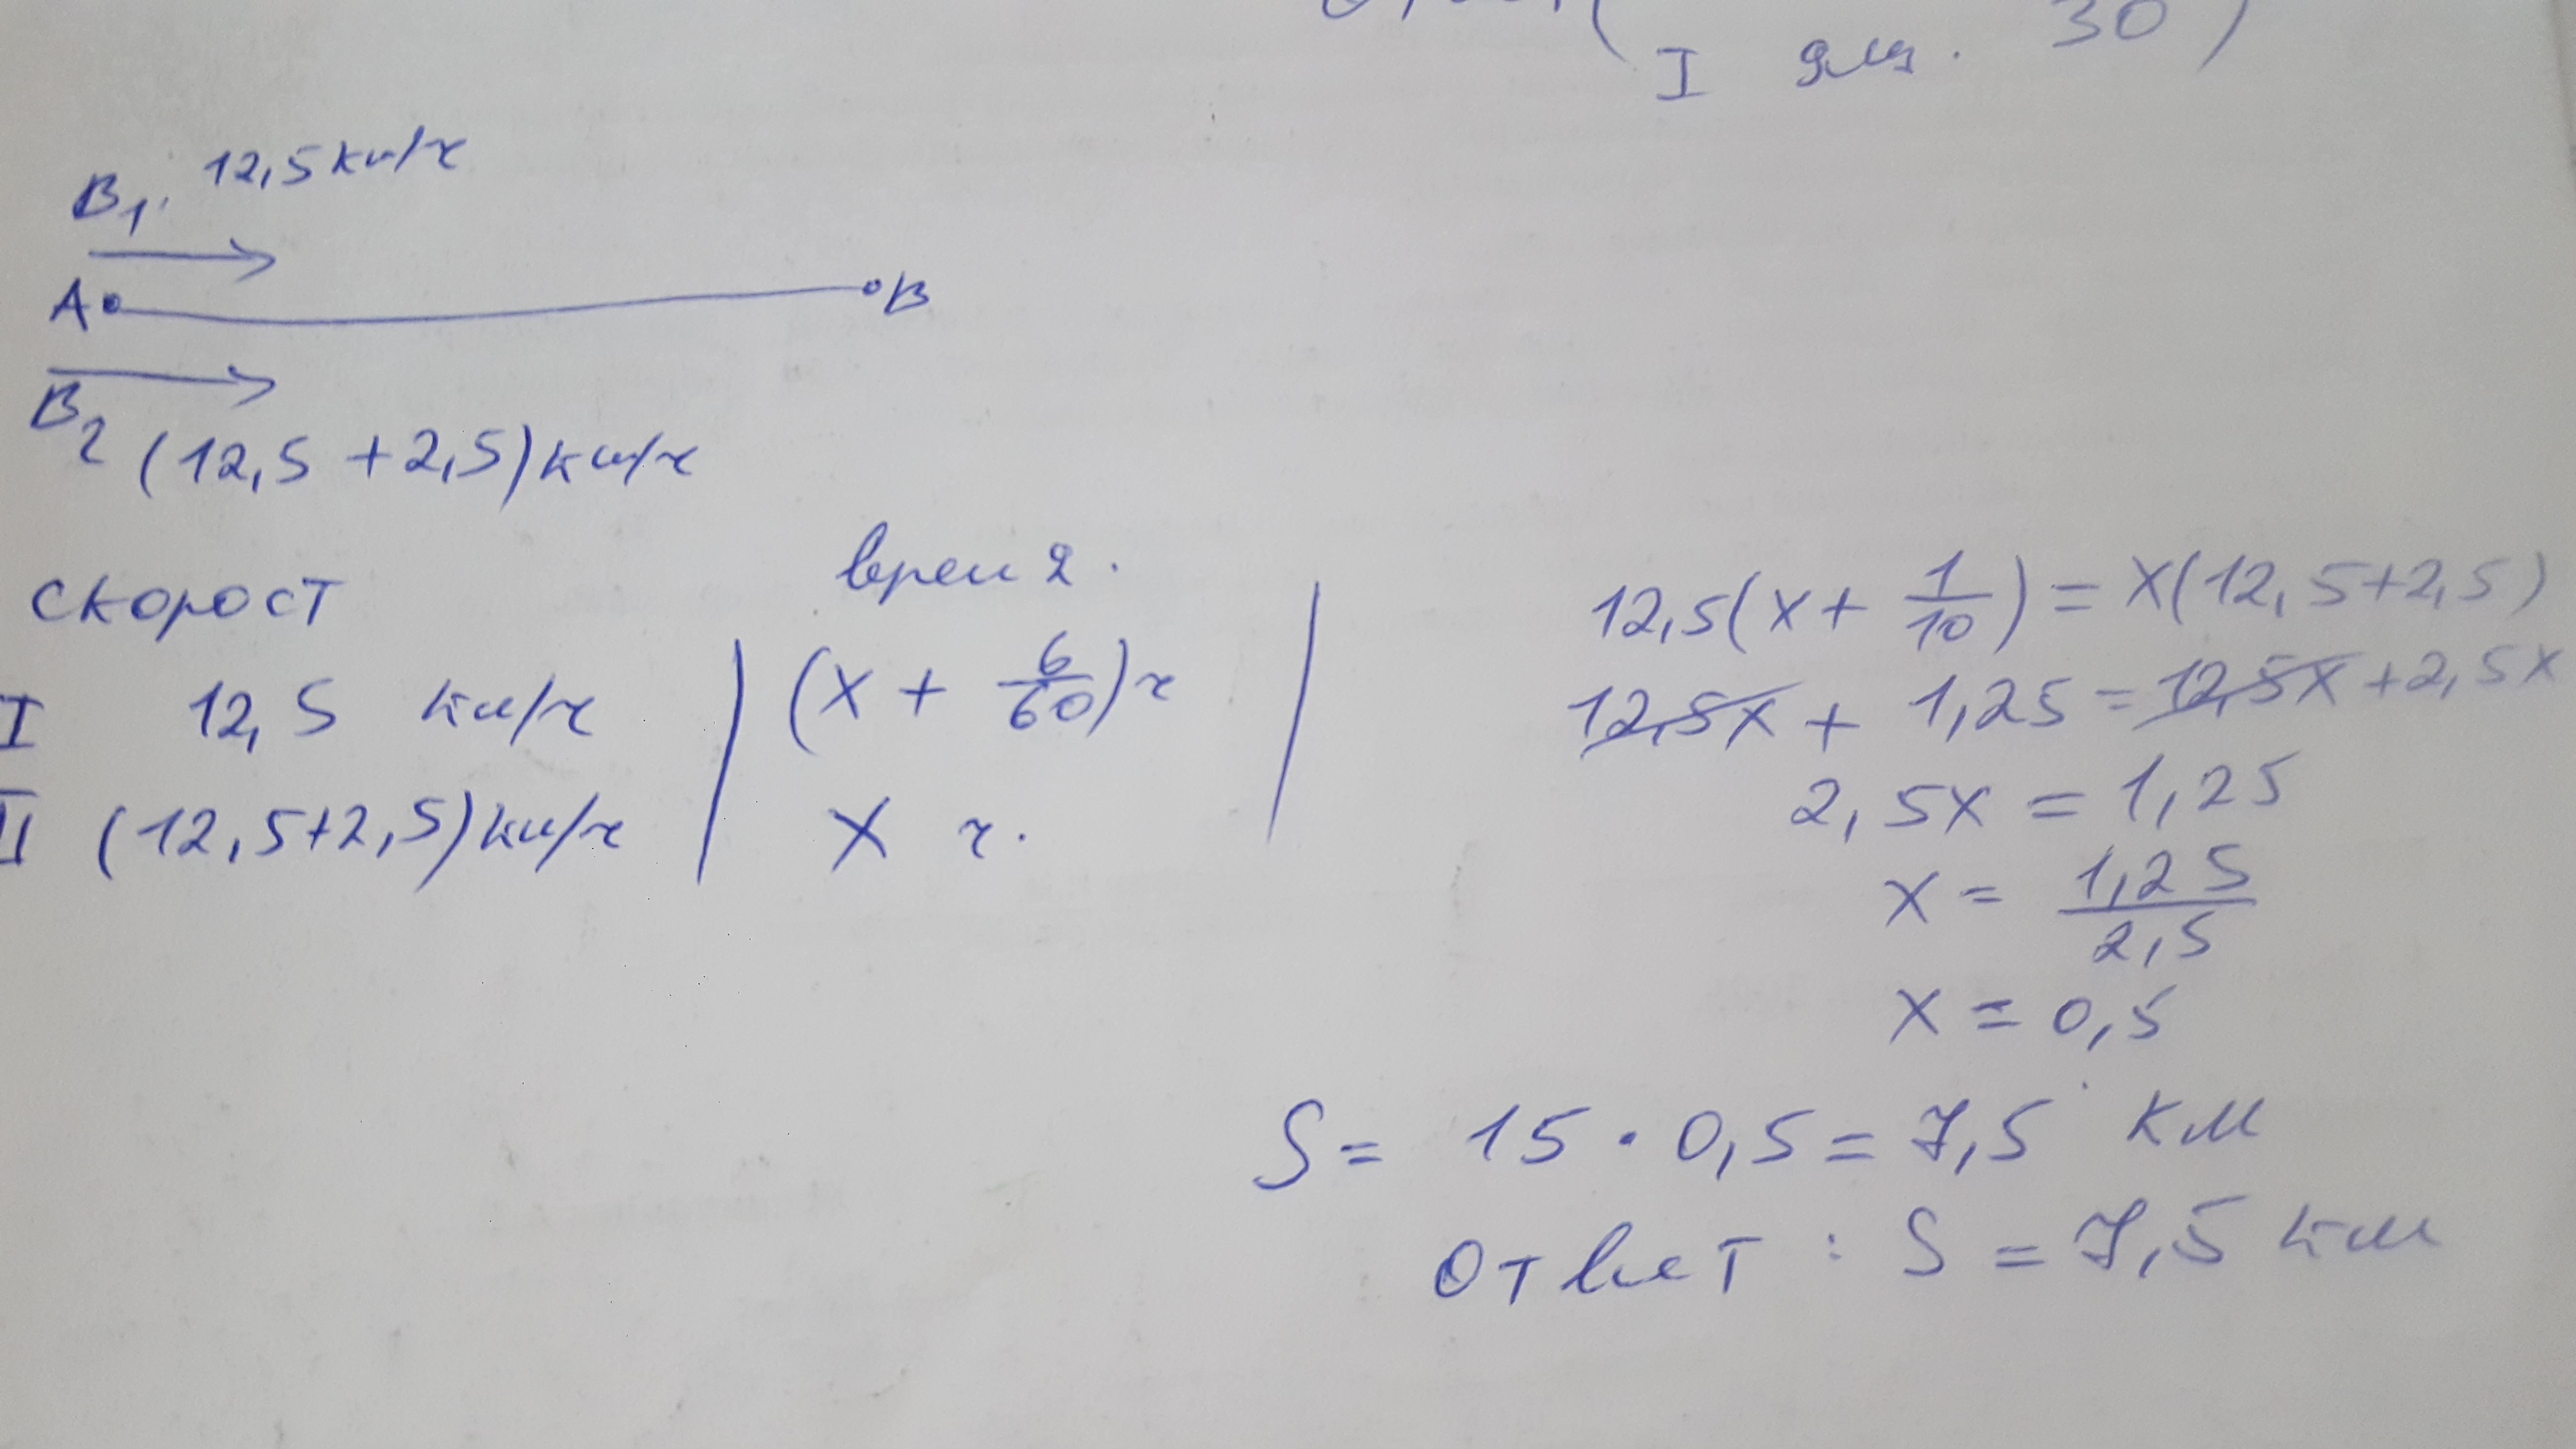 I ящ. 30)
B1. 12,5 км/ч
A B
B2 (12,5 + 2,5) км/ч
Скорост врем 2.
I 12,5 км/ч (x + 6/60) ч
II (12,5+2,5) км/ч x ч.
12,5(x + 1/10) = x(12,5+2,5)
12,5x + 1,25 = 12,5x + 2,5x
2,5x = 1,25
x = 1,25/2,5
x = 0,5
S = 15 · 0,5 = 7,5 км
Ответ : S = 7,5 км